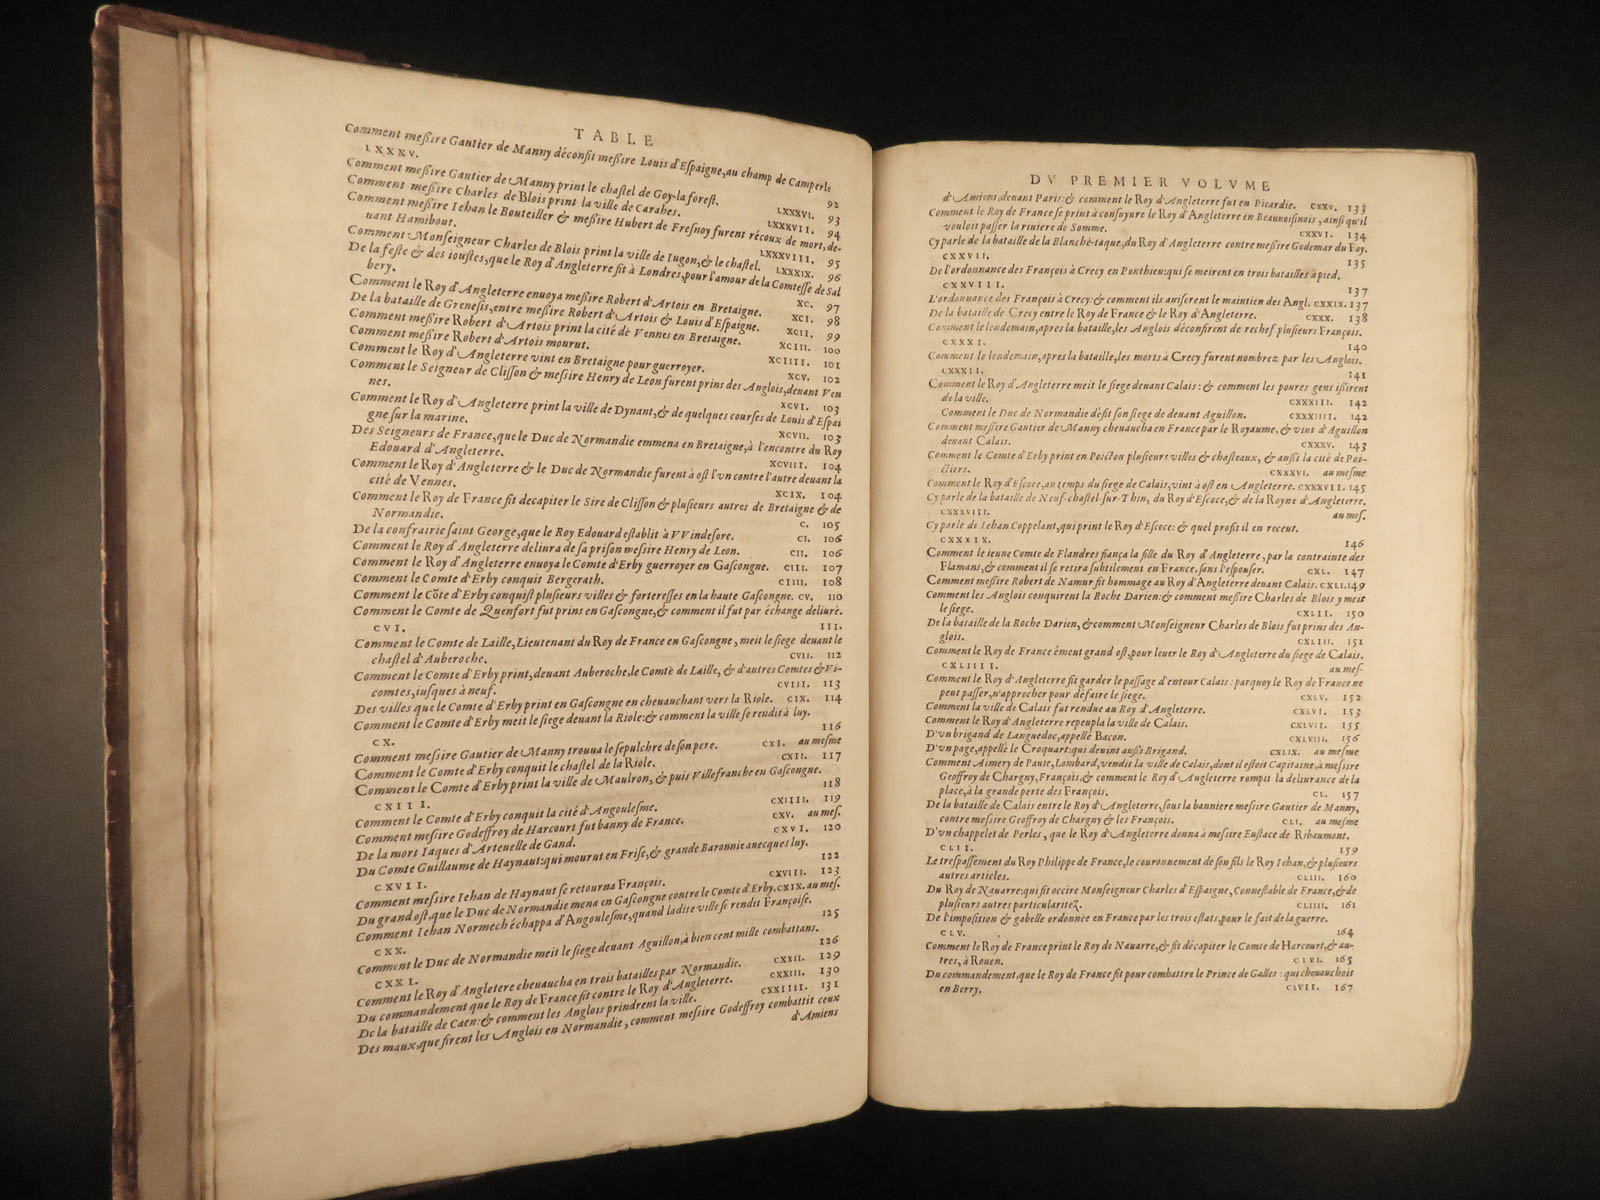 TABLE
Comment meßire Gautier de Manny déconfit meßire Louis d'Espaigne, au champ de Camperle
LXXXV. 92
Comment meßire Gautier de Manny print le chastel de Goy-la forest. LXXXVI. 93
Comment meßire Charles de Blois print la ville de Carahes. LXXXVII. 94
Comment meßire Iehan le Bouteiller & meßire Hubert de Fresnoy furent récoux de mort, de-
uant Hamibout. LXXXVIII. 95
Comment Monseigneur Charles de Blois print la ville de Iugon, & le chastel. LXXXIX. 96
De la feste & des ioustes, que le Roy d'Angleterre fit à Londres, pour l'amour de la Comtesse de Sal
bery. XC. 97
Comment le Roy d'Angleterre enuoya meßire Robert d'Artois en Bretaigne. XCI. 98
De la bataille de Grenesis, entre meßire Robert d'Artois & Louis d'Espaigne. XCII. 99
Comment meßire Robert d'Artois print la cité de Vennes en Bretaigne. XCIII. 100
Comment meßire Robert d'Artois mourut. XCIIII. 101
Comment le Roy d'Angleterre vint en Bretaigne pour guerroyer. XCV. 102
Comment le Seigneur de Clisson & meßire Henry de Leon furent prins des Anglois, deuant Ven
nes. XCVI. 103
Comment le Roy d'Angleterre print la ville de Dynant, & de quelques courses de Louis d'Espai
gne sur la marine. XCVII. 103
Des Seigneurs de France, que le Duc de Normandie emmena en Bretaigne, à l'encontre du Roy
Edouard d'Angleterre. XCVIII. 104
Comment le Roy d'Angleterre & le Duc de Normandie furent à ost l'vn contre l'autre deuant la
cité de Vennes. XCIX. 104
Comment le Roy de France fit decapiter le Sire de Clisson & plusieurs autres de Bretaigne & de
Normandie. C. 105
De la confrairie saint George, que le Roy Edouard establit à VVindesore. CI. 106
Comment le Roy d'Angleterre deliura de sa prison meßire Henry de Leon. CII. 106
Comment le Roy d'Angleterre enuoya le Comte d'Erby guerroyer en Gascongne. CIII. 107
Comment le Comte d'Erby conquit Bergerath. CIIII. 108
Comment le Cõte d'Erby conquist plusieurs villes & forteresses en la haute Gascongne. CV. 110
Comment le Comte de Quenfort fut prins en Gascongne, & comment il fut par échange deliuré.
CVI. 111.
Comment le Comte de Laille, Lieutenant du Roy de France en Gascongne, meit le siege deuant le
chastel d'Auberoche. CVII. 112
Comment le Comte d'Erby print, deuant Auberoche, le Comte de Laille, & d'autres Comtes & Vi-
comtes, iusques à neuf. CVIII. 113
Des villes que le Comte d'Erby print en Gascongne en cheuauchant vers la Riole. CIX. 114
Comment le Comte d'Erby meit le siege deuant la Riole: & comment la ville se rendit à luy.
CX. 116
Comment meßire Gautier de Manny trouua le sepulchre de son pere. CXI. au mesme
Comment le Comte d'Erby conquit le chastel de la Riole. CXII. 117
Comment le Comte d'Erby print la ville de Maulron, & puis Villefranche en Gascongne.
CXIII. 118
Comment le Comte d'Erby conquit la cité d'Angoulesme. CXIIII. 119
Comment meßire Godeffroy de Harcourt fut banny de France. CXV. au mes.
De la mort Iaques d'Arteuelle de Gand. CXVI. 120
Du Comte Guillaume de Haynaut: qui mourut en Frise, & grande Baronnie auecques luy.
CXVII. 122
Comment meßire Iehan de Haynaut se retourna François. CXVIII. 123
Du grand ost, que le Duc de Normandie mena en Gascongne contre le Comte d'Erby. CXIX. au mes.
Comment Iehan Normech échappa d'Angoulesme, quand ladite ville se rendit Françoise.
CXX. 125
Comment le Duc de Normandie meit le siege deuant Aguillon, à bien cent mille combattans.
CXXI. 126
Comment le Roy d'Angletere cheuaucha en trois batailles par Normandie. CXXII. 129
Du commandement que le Roy de France fit contre le Roy d'Angleterre. CXXIII. 130
De la bataille de Caen: & comment les Anglois prindrent la ville. CXXIIII. 131
Des maux, que firent les Anglois en Normandie, comment meßire Godeffroy combattit ceux
d'Amiens
DV PREMIER VOLVME
d'Amiens, deuant Paris: & comment le Roy d'Angleterre fut en Picardie. CXXV. 133
Comment le Roy de France se print à consuyure le Roy d'Angleterre en Beauuoisinois, ainsi qu'il
vouloit passer la riuiere de Somme. CXXVI. 134
Cy parle de la bataille de la Blanche-taque, du Roy d'Angleterre contre meßire Godemar du Fay.
CXXVII. 135
De l'ordonnance des François à Crecy en Ponthieu: qui se meirent en trois batailles à pied.
CXXVIII. 137
L'ordonnance des François à Crecy: & comment ils auiserent le maintien des Angl. CXXIX. 137
De la bataille de Crecy entre le Roy de France & le Roy d'Angleterre. CXXX. 138
Comment le lendemain, apres la bataille, les Anglois déconfirent de rechef plusieurs François.
CXXXI. 140
Comment le lendemain, apres la bataille, les morts à Crecy furent nombrez par les Anglois.
CXXXII. 141
Comment le Roy d'Angleterre meit le siege deuant Calais: & comment les poures gens ißirent
de la ville. CXXXIII. 142
Comment le Duc de Normandie défit son siege de deuant Aguillon. CXXXIIII. 142
Comment meßire Gautier de Manny cheuaucha en France par le Royaume, & vint d'Aguillon
deuant Calais. CXXXV. 143
Comment le Comte d'Erby print en Poictou plusieurs villes & chasteaux, & außi la cité de Poi-
ctiers. CXXXVI. au mesme
Comment le Roy d'Escoce, au temps du siege de Calais, vint à ost en Angleterre. CXXXVII. 145
Cy parle de la bataille de Neuf-chastel-sur-Thin, du Roy d'Escoce, & de la Royne d'Angleterre.
CXXXVIII. au mes.
Cy parle de Iehan Coppelant, qui print le Roy d'Escoce: & quel profit il en receut.
CXXXIX. 146
Comment le ieune Comte de Flandres fiança la fille du Roy d'Angleterre, par la contrainte des
Flamans, & comment il se retira subtilement en France, sans l'espouser. CXL. 147
Comment meßire Robert de Namur fit hommage au Roy d'Angleterre deuant Calais. CXLI. 149
Comment les Anglois conquirent la Roche Darien: & comment meßire Charles de Blois y meit
le siege. CXLII. 150
De la bataille de la Roche Darien, & comment Monseigneur Charles de Blois fut prins des An-
glois. CXLIII. 151
Comment le Roy de France émeut grand ost, pour leuer le Roy d'Angleterre du siege de Calais.
CXLIIII. au mes-
Comment le Roy d'Angleterre fit garder le passage d'entour Calais: parquoy le Roy de France ne
peut passer, n'approcher pour défaire le siege. CXLV. 152
Comment la ville de Calais fut rendue au Roy d'Angleterre. CXLVI. 153
Comment le Roy d'Angleterre repeupla la ville de Calais. CXLVII. 155
D'vn brigand de Languedoc, appellé Bacon. CXLVIII. 156
D'vn page, appellé le Croquart: qui deuint außi Brigand. CXLIX. au mesme
Comment Aimery de Pauie, Lombard, vendit la ville de Calais, dont il estoit Capitaine, à meßire
Geoffroy de Chargny, François, & comment le Roy d'Angleterre rompit la deliurance de la
place, à la grande perte des François. CL. 157
De la bataille de Calais entre le Roy d'Angleterre, sous la banniere meßire Gautier de Manny,
contre meßire Geoffroy de Chargny & les François. CLI. au mesme
D'vn chappelet de Perles, que le Roy d'Angleterre donna à meßire Eustace de Ribaumont.
CLII. 159
Le trespassement du Roy Philippe de France, le couronnement de son fils le Roy Iehan, & plusieurs
autres articles. CLIII. 160
Du Roy de Nauarre: qui fit occire Monseigneur Charles d'Espaigne, Connestable de France, & de
plusieurs autres particularitez. CLIIII. 161
De l'imposition & gabelle ordonnée en France par les trois estats, pour le fait de la guerre.
CLV. 164
Comment le Roy de France print le Roy de Nauarre, & fit décapiter le Comte de Harcourt, & au-
tres, à Rouen. CLVI. 165
Du commandement, que le Roy de France fit pour combattre le Prince de Galles: qui cheuauchoit
en Berry. CLVII. 167